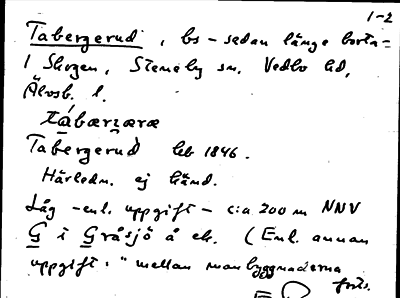 1-2
Tabergerud, bs - sedan länge borta -
i Skogen, Steneby sn, Vedbo hd,
Älvsb. l.
tábærʒæræ
Tabergerud leb 1846.
Härledn. ej känd.
Låg - enl. uppgift - c:a 200 m NNV
G i Gråsjö å ek. (Enl. annan
uppgift: "mellan manbyggnaderna
forts.